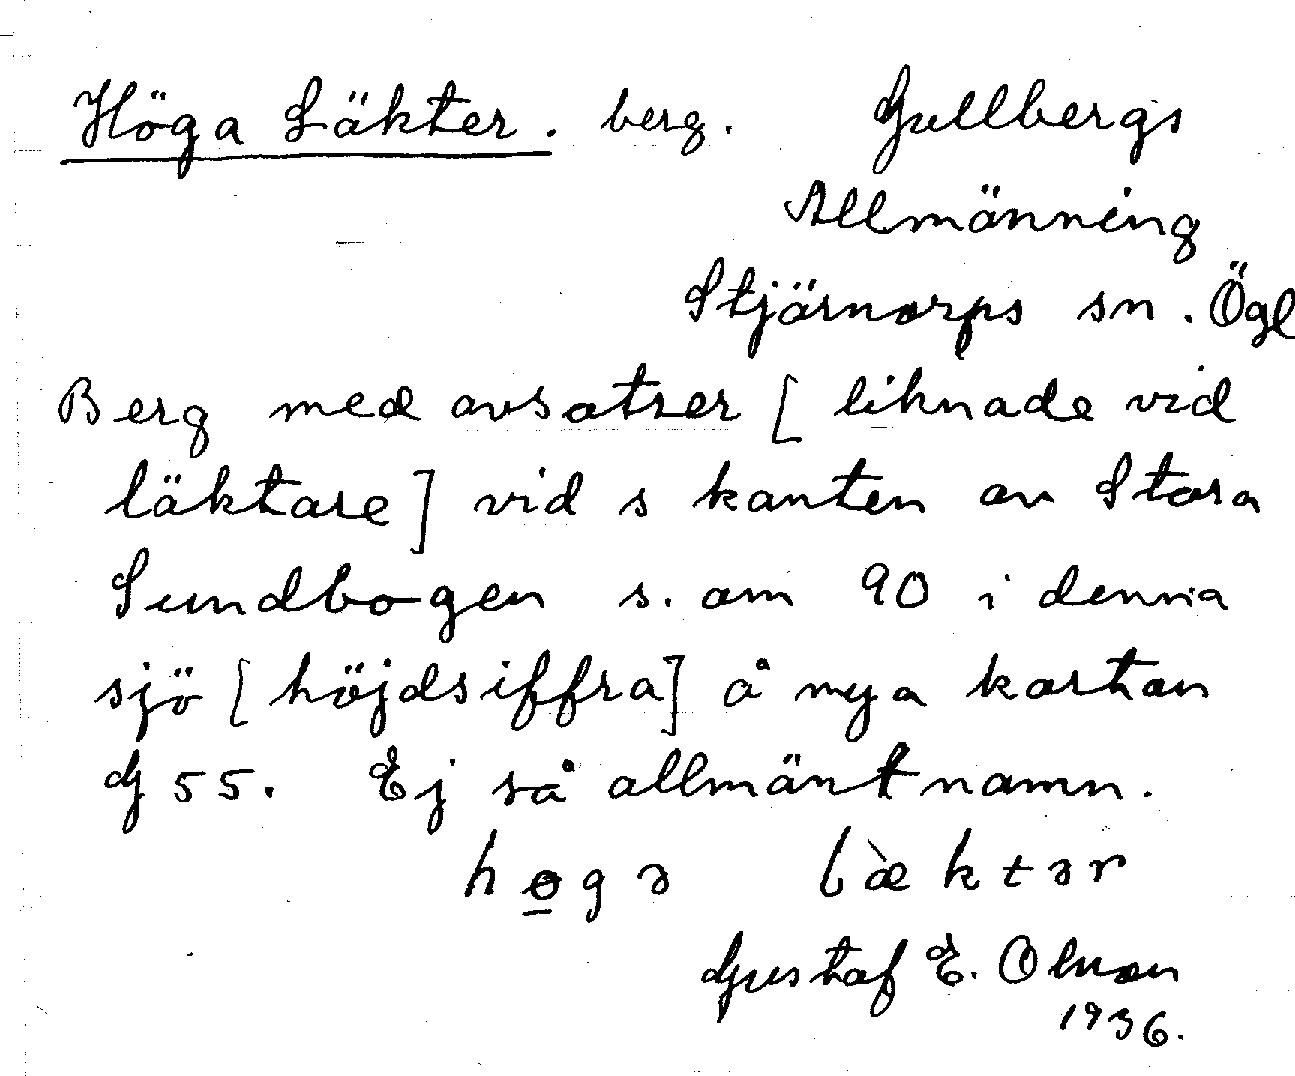 Höga Läkter. berg. Gullbergs
Allmänning
Stjärnorps sn. Ögl
Berg med avsatser [liknade vid
läktare] vid s kanten av Stora
Sundbogen s. om 90 i denna
sjö [höjdsiffra] å nya kartan
G 55. Ej så allmänt namn.
høgə lὰktər
Gustaf E. Olsson
1936.